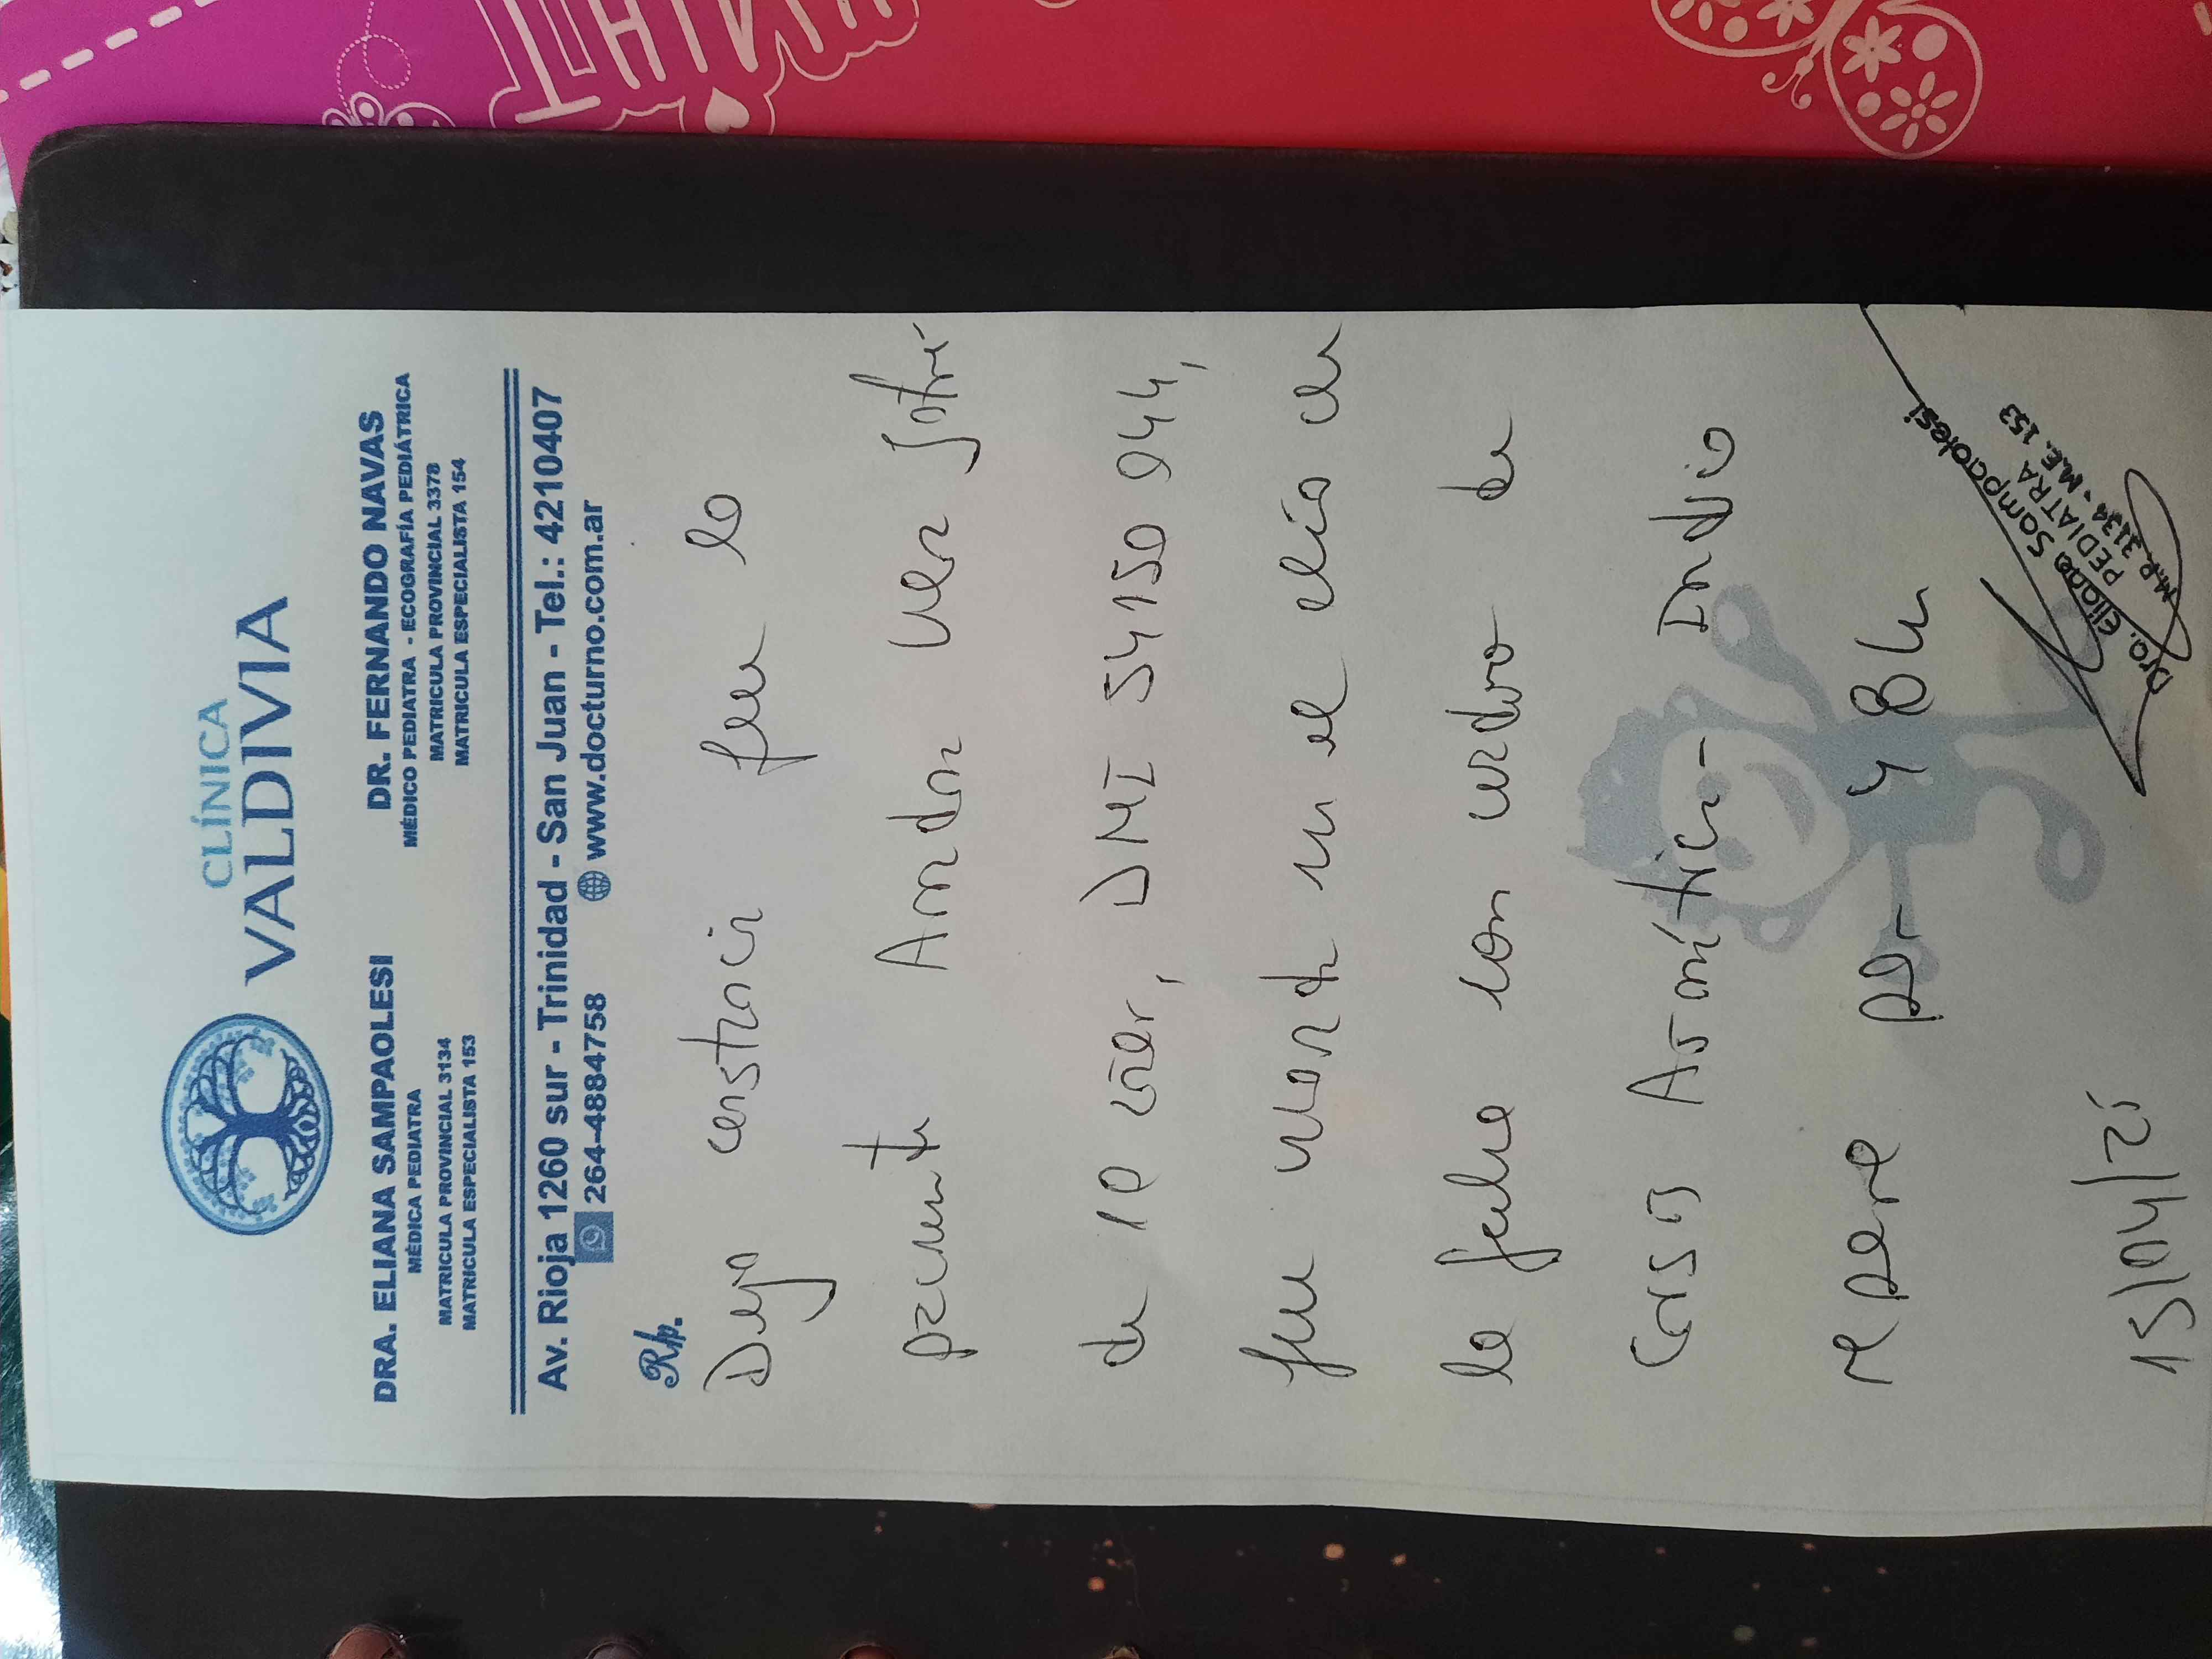 CLÍNICA
VALDIVIA
DRA. ELIANA SAMPAOLESI
MÉDICA PEDIATRA
MATRICULA PROVINCIAL 3134
MATRICULA ESPECIALISTA 153
DR. FERNANDO NAVAS
MÉDICO PEDIATRA - ECOGRAFÍA PEDIÁTRICA
MATRICULA PROVINCIAL 3378
MATRICULA ESPECIALISTA 154
Av. Rioja 1260 sur - Trinidad - San Juan - Tel.: 4210407
264-4884758 www.docturno.com.ar
Rp.
Dejo constancia que la
paciente
de 10 años, DNI 54150944,
que en el día de
la fecha con cuadro de
Crisis Asmática. Indico
reposo por 48h
15/04/25
Dra. Eliana Sampaolesi
PEDIATRA
M.P. 3134 - M.E. 153